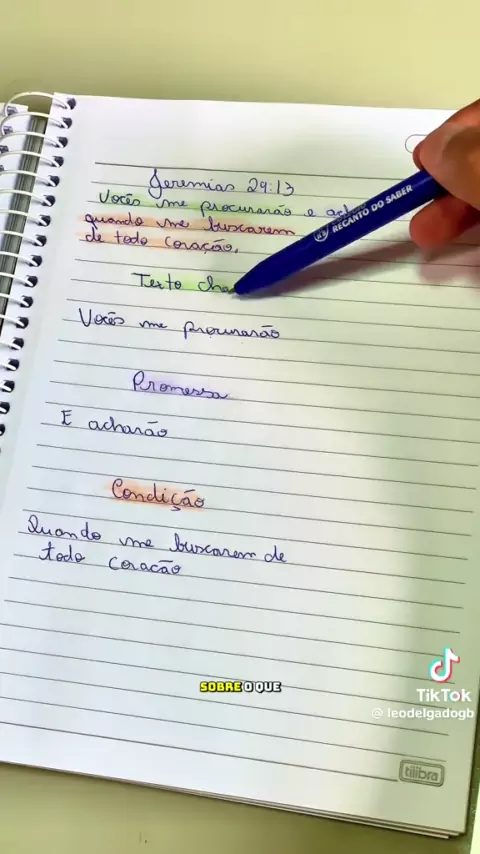 Jeremias 29:13
Vocês me procurarão e
quando me buscarem
de todo coração.
RECANTO DO SABER
Texto
Vocês me procurarão
Promessa
E acharão
Condição
Quando me buscarem de
todo coração
SOBRE O QUE
TikTok
@ leodelgadogb
tilibra